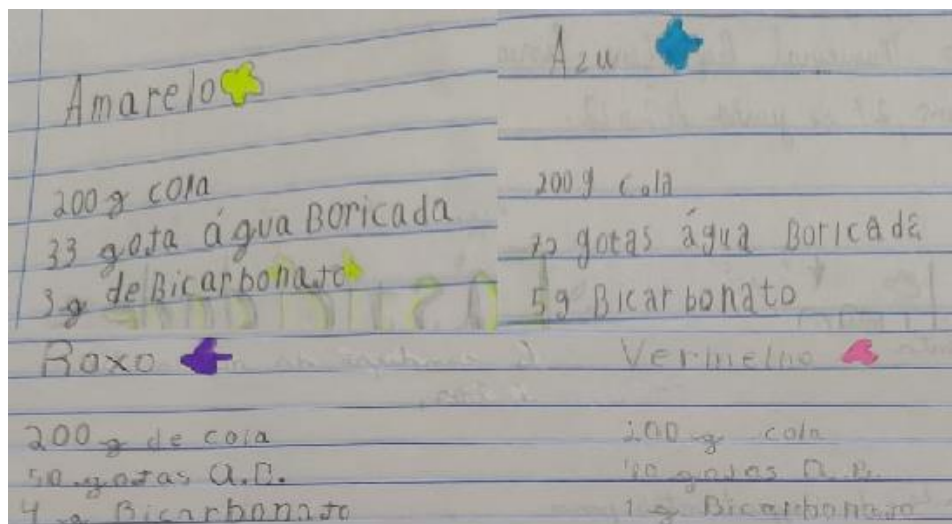 Amarelo
200 g cola
33 gota água Boricada
3 g de Bicarbonato
Azul
200 g cola
gotas água Boricada
5 g Bicarbonato
Roxo
200 g de cola
50 gotas A.B.
4 g Bicarbonato
Vermelho
200 g cola
gotas A.B.
1 g Bicarbonato